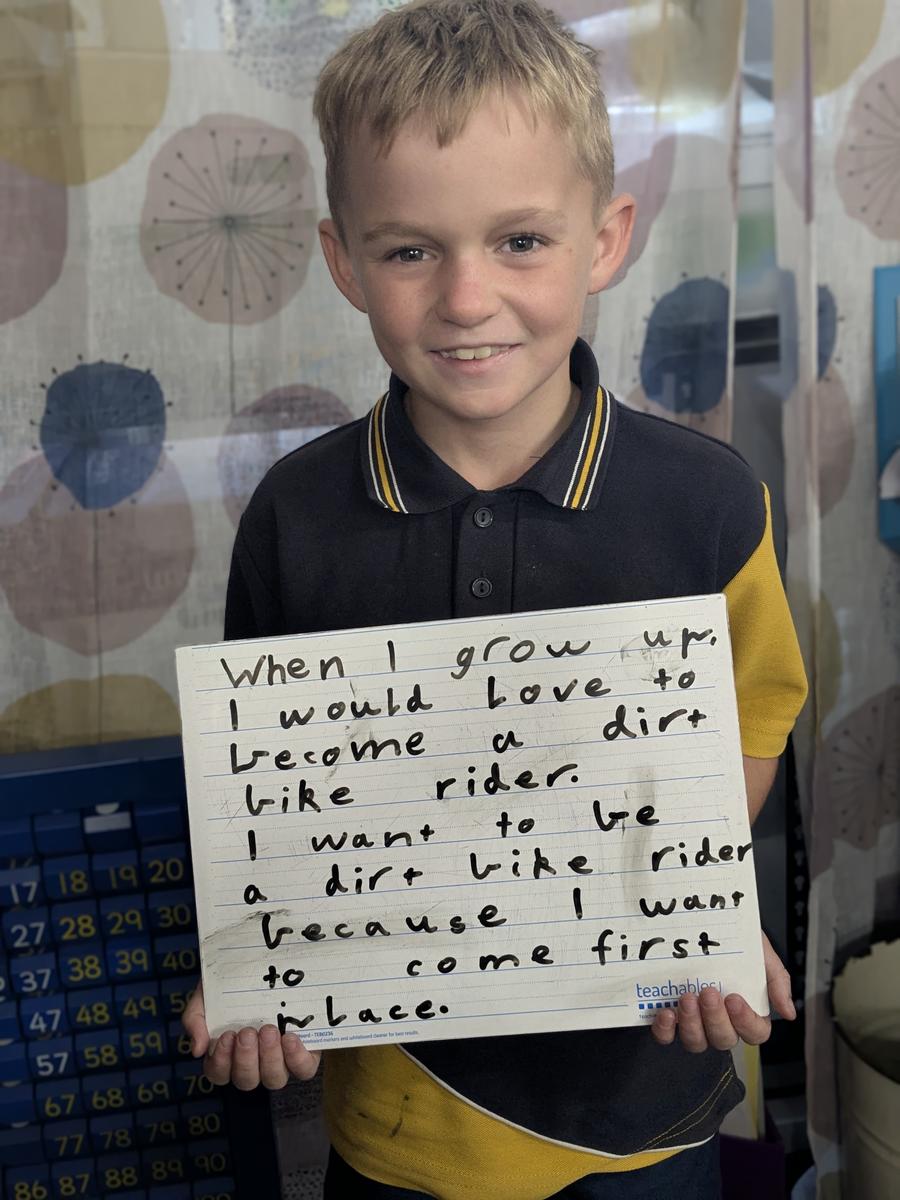 When I grow up,
I would love to
become a dirt
bike rider.
I want to be
a dirt bike rider
because I want
to come first
in place.
teachables
whiteboard markers and whiteboard cleaner for best results.
17 18 19 20
27 28 29 30
37 38 39 40
47 48 49
57 58 59
67 68 69 70
77 78 79 80
86 87 88 89 90